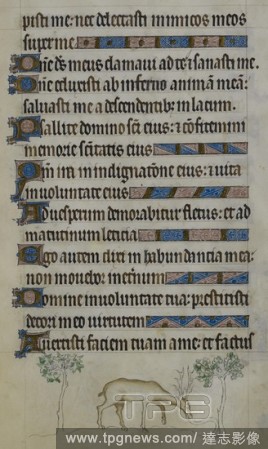 pisti me: nec delectasti inimicos meos
super me
Dñe ds meus clamaui ad te: ⁊ sanasti me.
Dñe eduxisti ab inferno animam meã:
saluasti me a descendentibꝫ in lacum.
Psallite domino sc̃i eius: ⁊ confitemini
memorie sc̃itatis eius
Qm̃ ira in indignatõne eius: ⁊ uita
in uoluntate eius
Ad uesperum demorabitur fletus: et ad
matutinum leticia
Ego autem dixi in habundancia mea:
non mouebor in et̃num
Domine in uoluntate tua: prestitisti
decori meo uirtutem
Auertisti faciem tuam a me: et factus
TPG
www.tpgnews.com / 達志影像